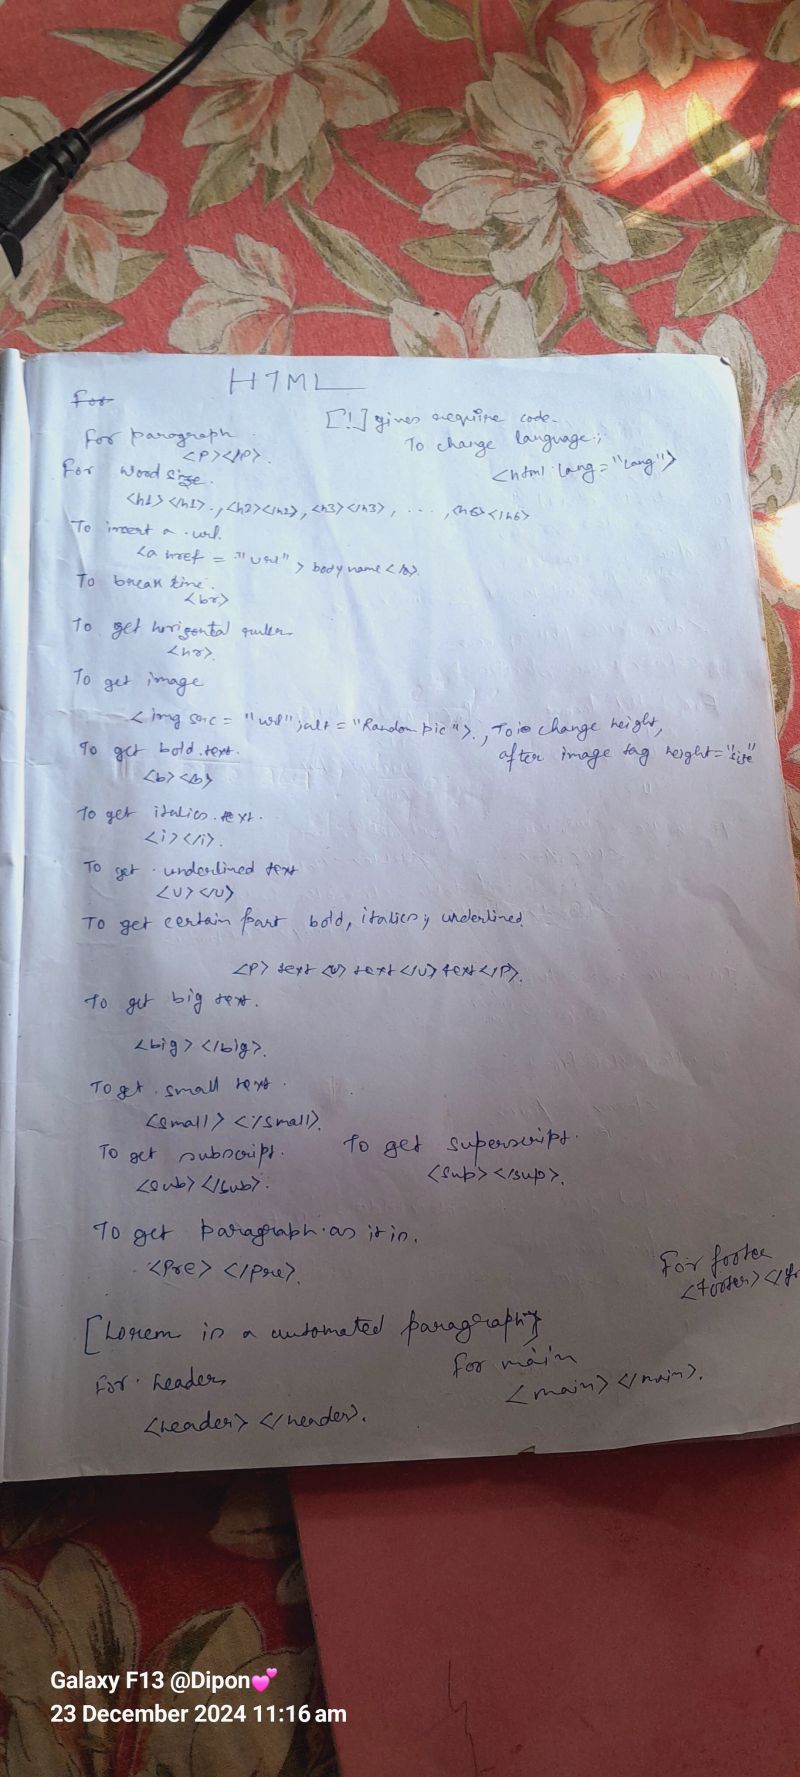 HTML
For
[!] gives require code.
For paragraph.
<P></P>.
To change language;
<html lang="lang">
For word size.
<h1></h1>., <h2></h2>, <h3></h3>, ...., <h6></h6>
To insert a url.
<a href = "url"> body name </a>.
To break line.
<br>
To get horizontal ruler.
<hr>.
To get image
<img src = "url"; alt = "Random pic">., To change height,
after image tag height="size"
To get bold text.
<b></b>
To get italics text.
<i></i>.
To get underlined text
<U></U>
To get certain part bold, italics, underlined.
<P> text <U> text </U> text </P>.
To get big text.
<big></big>.
To get small text.
<small></small>.
To get subscript.
To get superscript.
<sub></sub>.
<sup></sup>.
To get paragraph as it is.
<Pre></Pre>.
For footer
<footer></fo
[Lorem is a automated paragraph]
For header
For main
<header></header>.
<main></main>.
Galaxy F13 @Dipon💕
23 December 2024 11:16 am